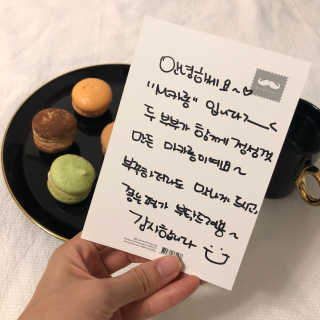 안녕하세요~
"M카롱" 입니다
두 부부가 함께 정성껏
만든 마카롱이예요~
부족하더라도 맛나게 드시고,
좋은 평가 부탁드려용~
감사합니다